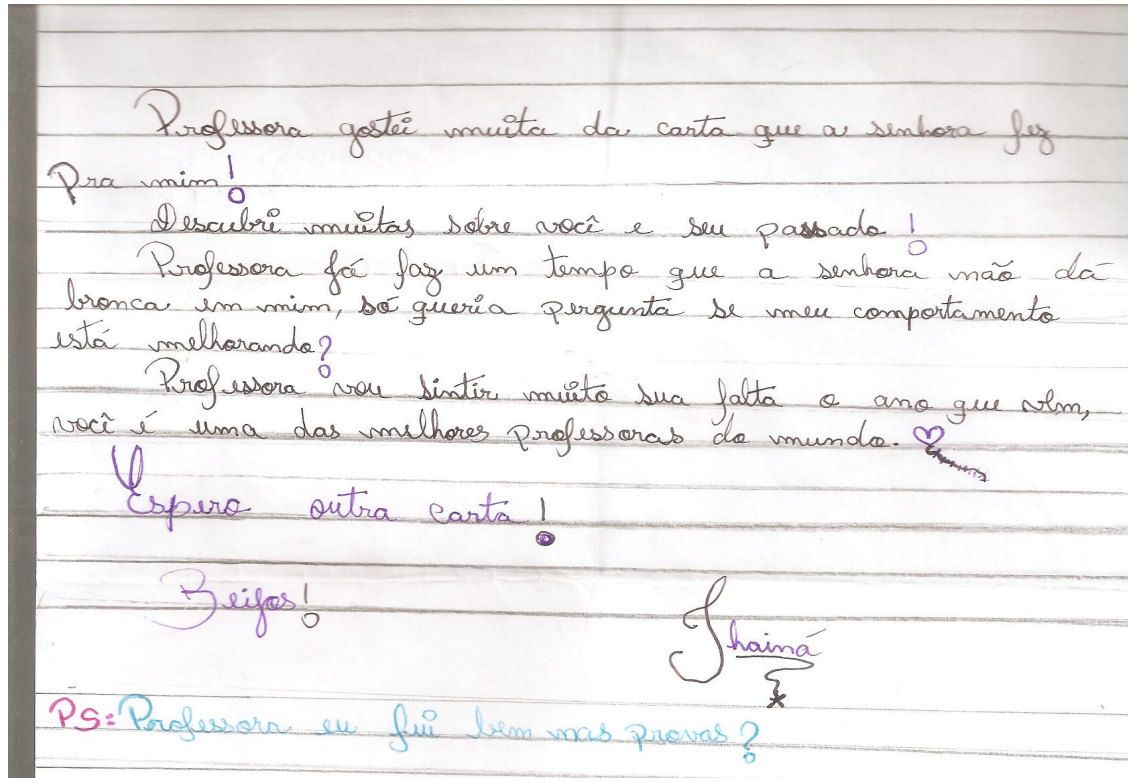 Professora gostei muita da carta que a senhora fez
Pra mim!
Descubri muitas sobre você e seu passado!
Professora já faz um tempo que a senhora não dá
bronca em mim, só queria pergunta se meu comportamento
está melhorando?
Professora vou sintir muito sua falta o ano que vem,
você é uma das melhores professoras do mundo.
Espero outra carta!
Beijos!
Thainá
PS: Professora eu fui bem nas provas?